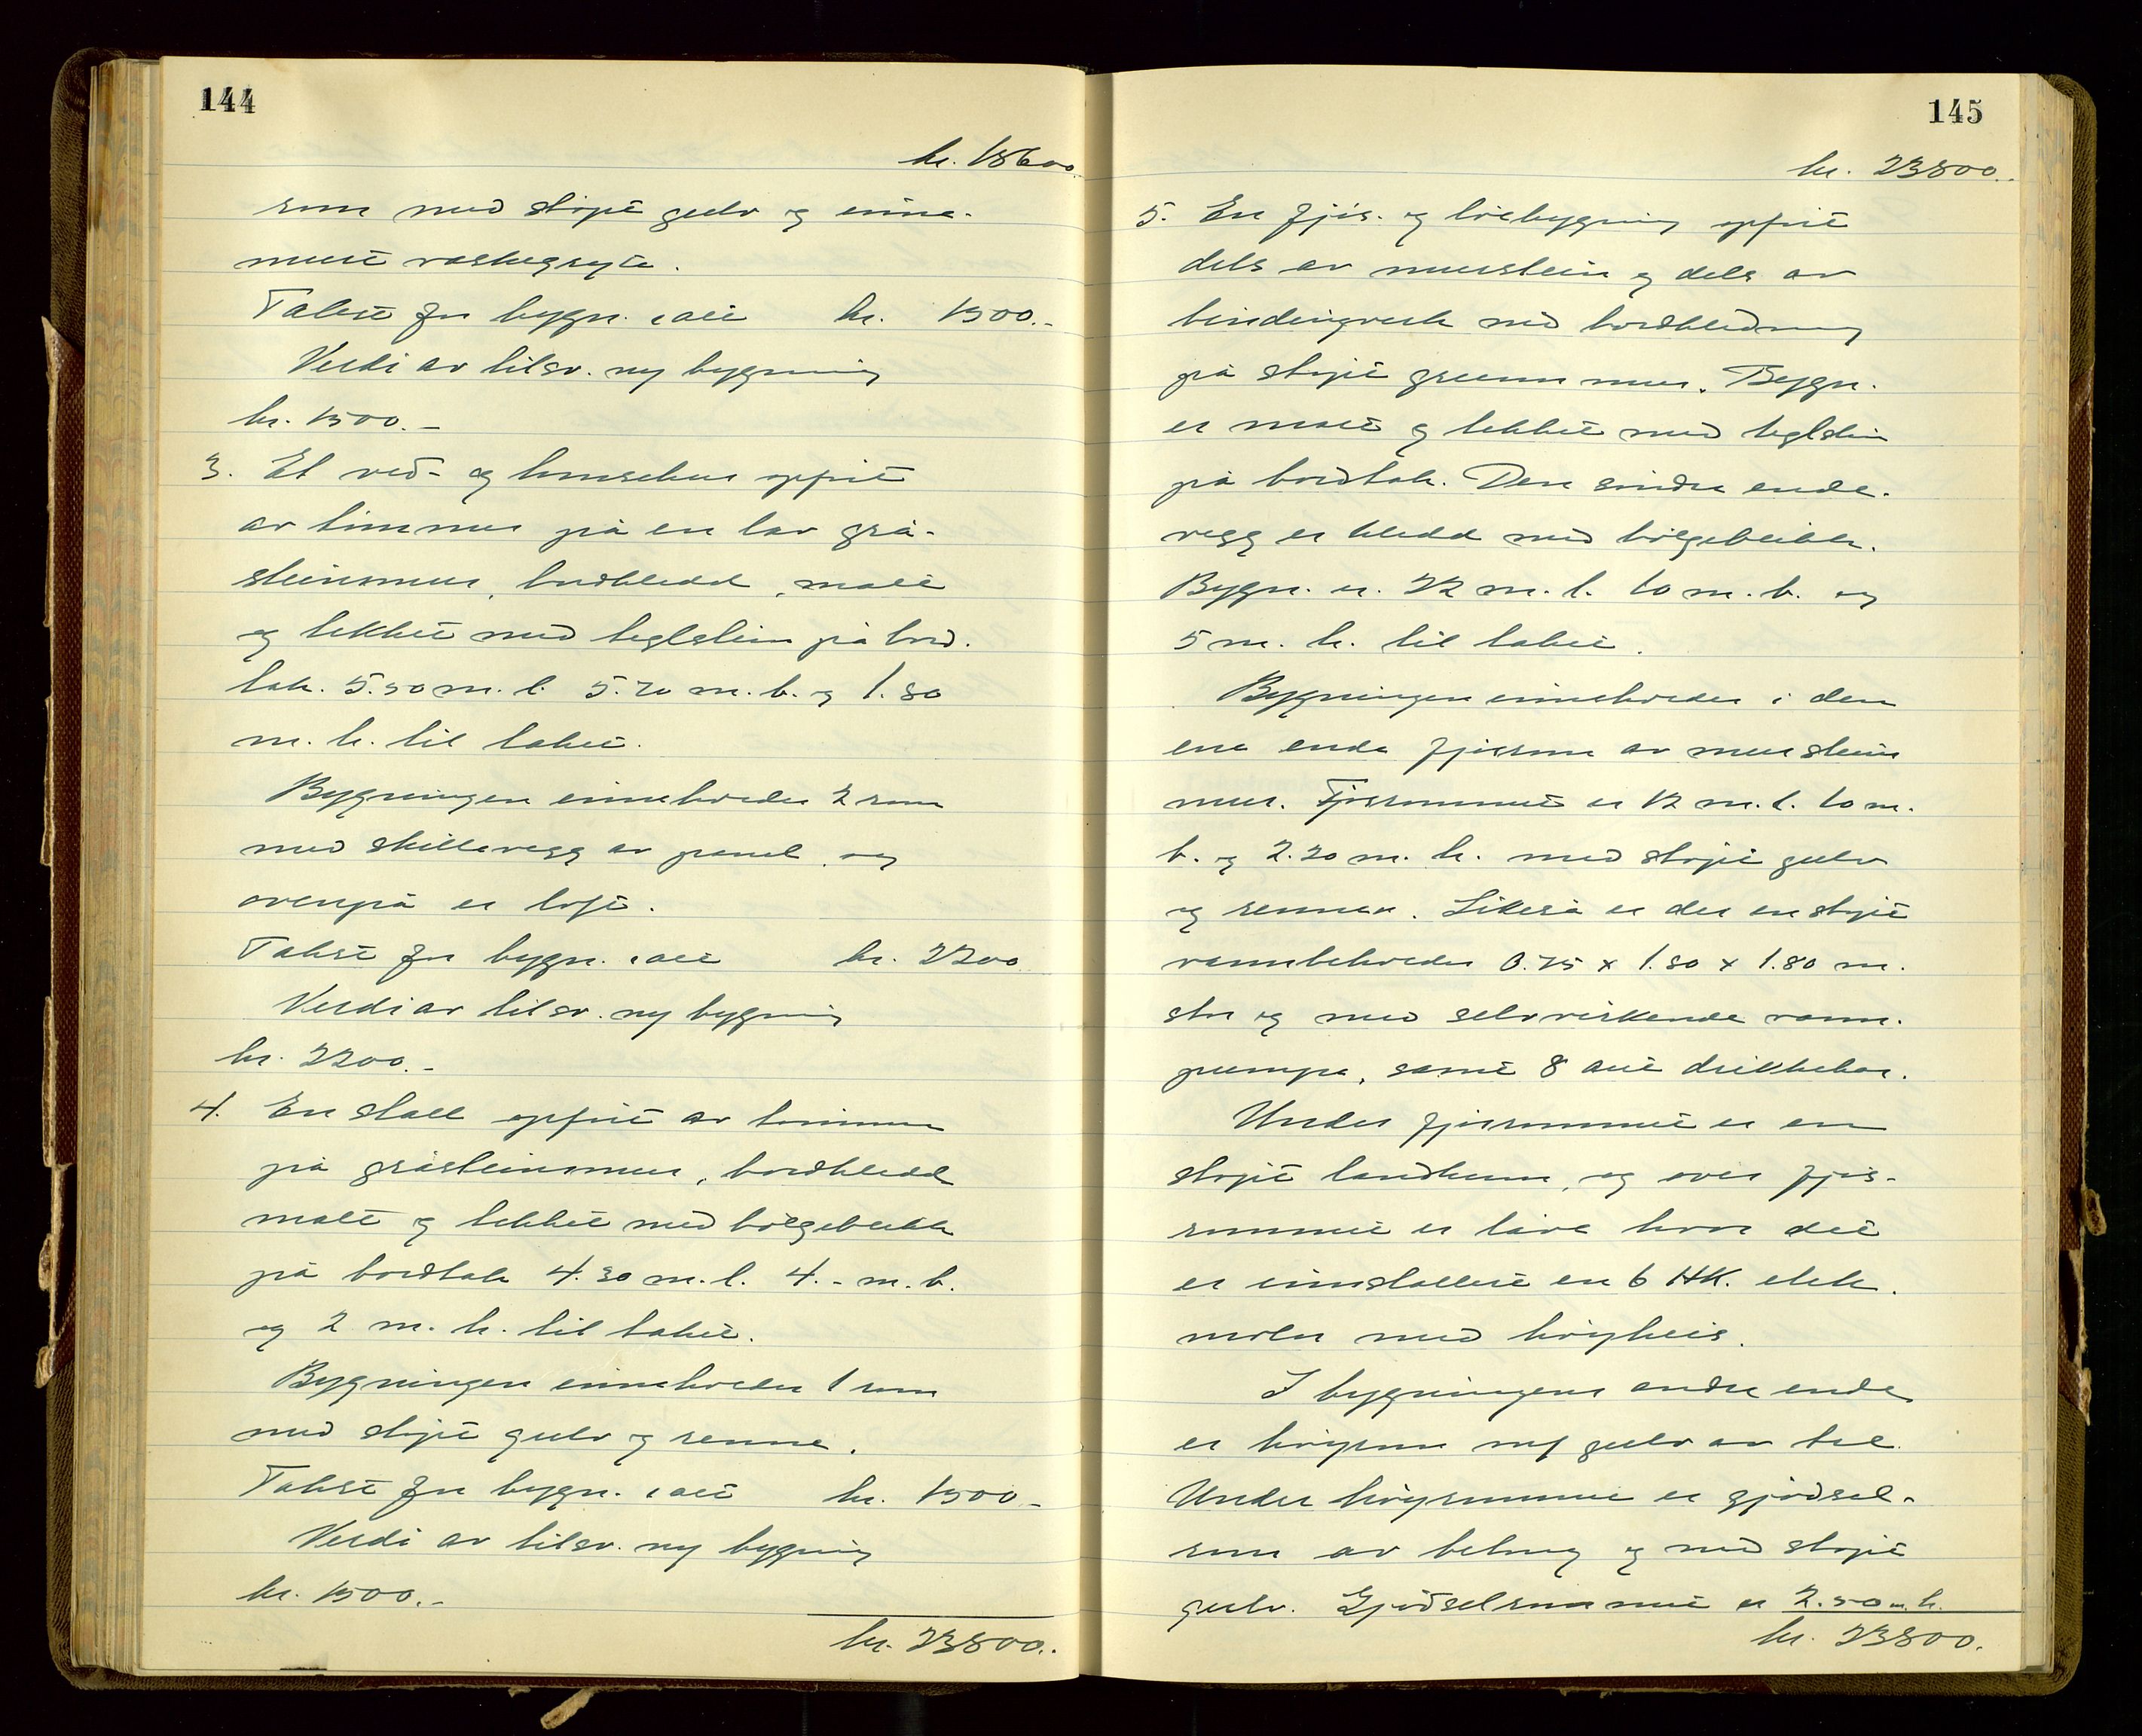 144
kr. 18600.
rom med støpt gulv og inne-
murt vaskegryte.
Takst for bygn. i alt kr. 1500.-
Verdi av tilsv. ny bygning
kr. 1500.-
3. Et ved- og hønsehus oppført
av tømmer på en lav grå-
steinsmur, bordkledd, malt
og tekket med teglstein på bord-
tak. 5.50 m. l. 5.20 m. b. og 1.80
m. h. til taket.
Bygningen inneholder 2 rom
med skillevegg av panel, og
ovenpå er loft.
Takst for bygn. i alt kr. 2200
Verdi av tilsv. ny bygning
kr. 2200.-
4. En stall oppført av tømmer
på gråsteinsmur, bordkledd
malt og tekket med bølgeblikk
på bordtak 4.30 m. l. 4.- m. b.
og 2 m. h. til taket.
Bygningen inneholder 1 rom
med støpt gulv og renne.
Takst for bygn. i alt kr. 1500.-
Verdi av tilsv. ny bygning
kr. 1500.-
kr. 23800.-
145
kr. 23800.-
5. En fjøs- og løebygning oppført
dels av murstein og dels av
bindingverk med bordkledning
på støpt grunnmur. Bygn.
er malt og tekket med teglstein
på bordtak. Den søndre ende-
vegg er kledd med bølgeblikk.
Bygn. er 22 m. l. 10 m. b. og
5 m. h. til taket.
Bygningen inneholder i den
ene ende fjøsrom av murstein
mur. Fjøsrommet er 12 m. l. 10 m.
b. og 2.20 m. h. med støpt gulv
og renner. Likeså er der en støpt
vannbeholder 0.75 x 1.80 x 1.80 m.
stor og med selvvirkende vann-
pumpe, samt 8 aut drikkekar.
Under fjøsrommet er en
støpt landkum, og over fjøs-
rommet er låve hvor det
er innstallert en 6 HK. elek.
motor med høyheis.
I bygningens andre ende
er høyrom m/ gulv av tre.
Under høyrommet er gjødsel-
rom av betong og med støpt
gulv. Gjødselrommet er 2.50 m. h.
kr. 23800.